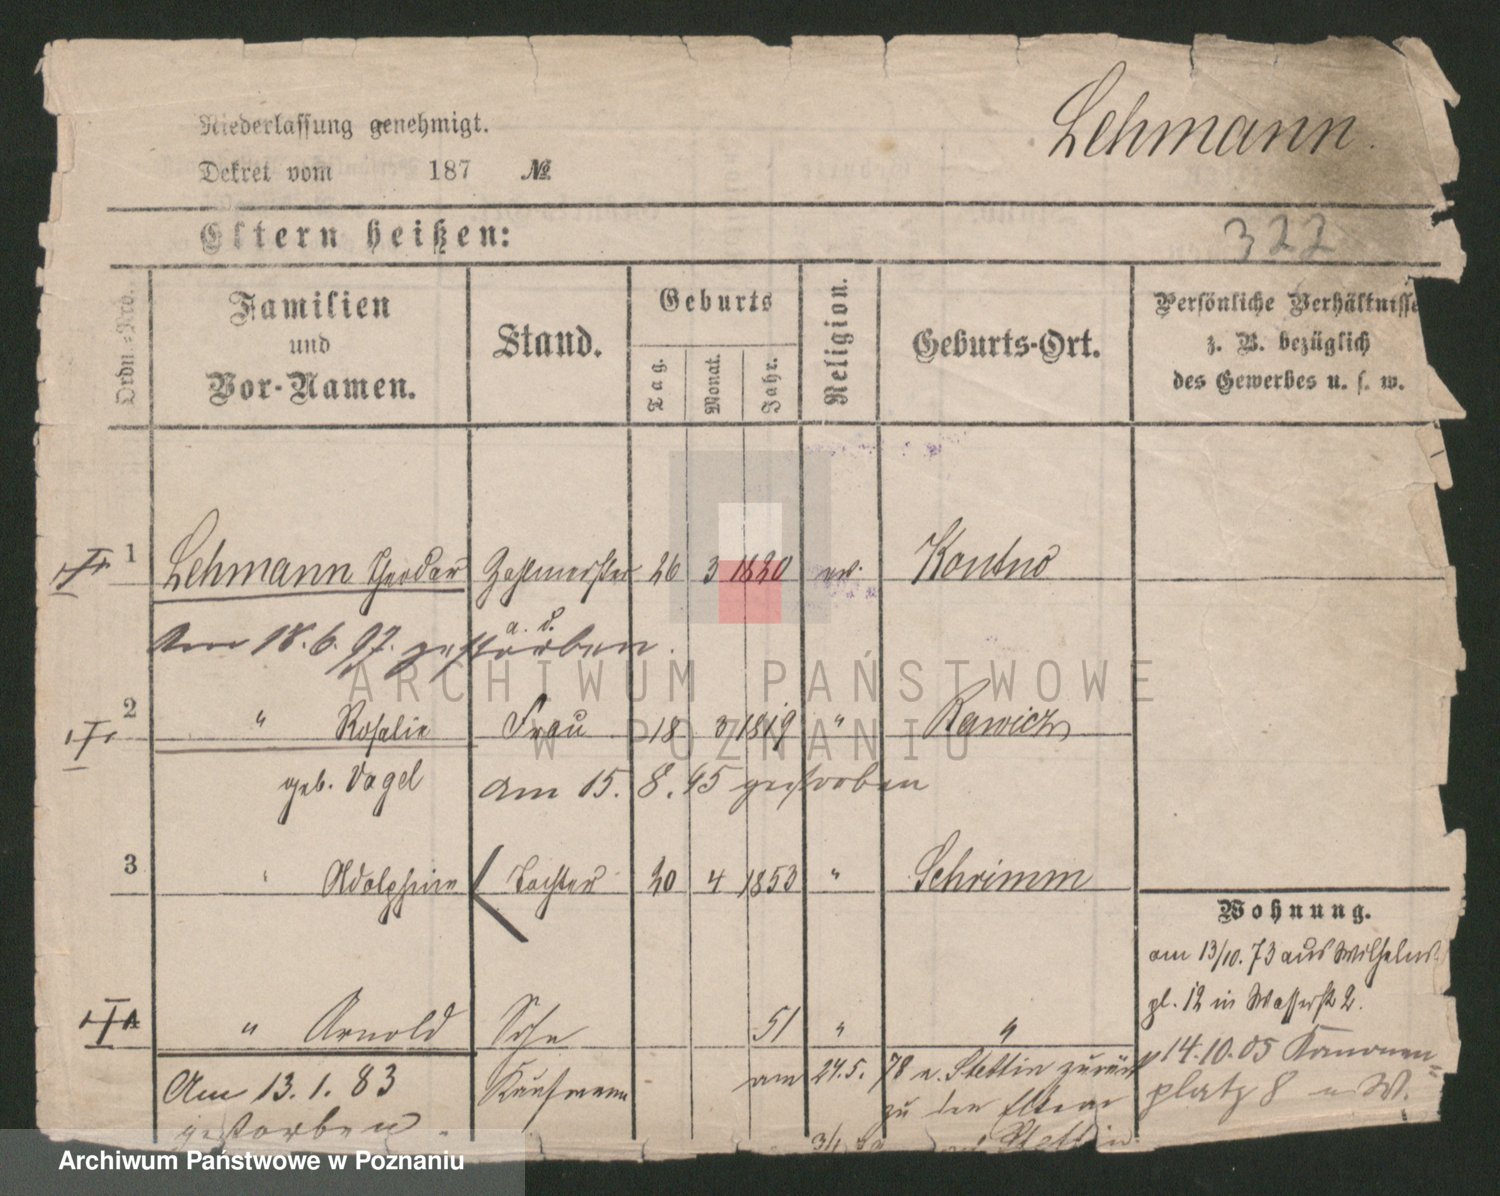 Niederlassung genehmigt.
Lehmann.
Dekret vom 187 №
Eltern heißen:
322
Ordn.-Nro.
Familien
und
Vor-Namen.
Stand.
Geburts
Tag.
Monat.
Jahr.
Religion.
Geburts-Ort.
Persönliche Verhältnisse
z. B. bezüglich
des Gewerbes u. s. w.
1 Lehmann Theodor Zahlmeister 26 3 1820 ev.
a. D.
Am 18. 6. 97. gestorben.
2 " Rosalie Frau 18 3 1819 " Rawicz
geb. Vogel am 15. 8. 95 gestorben
3 " Adolphine Tochter 20 4 1853 " Schrimm
Wohnung.
am 13/10. 73 aus Wilhelms-
pl. 12 in Wasserst 2.
14.10.05 Kanonen-
platz 8 W.
" Arnold Sohn 51 " "
Am 13. 1. 83 Kaufmann am 24.5. 78 v. Stettin zurück
gestorben. zu den Eltern
Stettin
ARCHIWUM PAŃSTWOWE
W POZNANIU
Archiwum Państwowe w Poznaniu